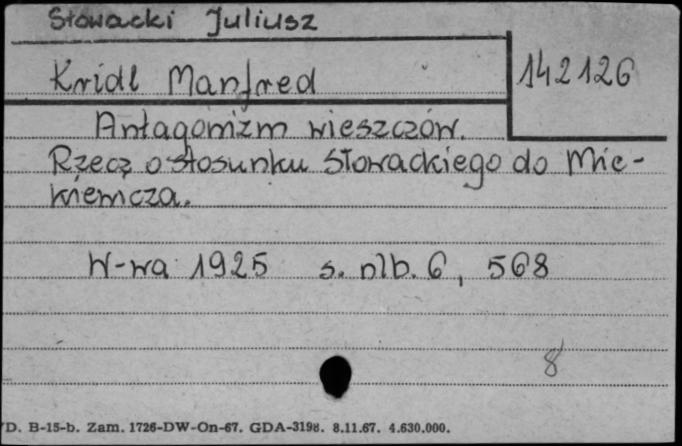 Słowacki Juliusz
Kridl Manfred
142126
Antagonizm wieszczów.
Rzecz o stosunku Słowackiego do Mic-
kiewicza.
W-wa 1925 s. nlb. 6, 568
8
D. B-15-b. Zam. 1726-DW-On-67. GDA-3198. 8.11.67. 4.630.000.